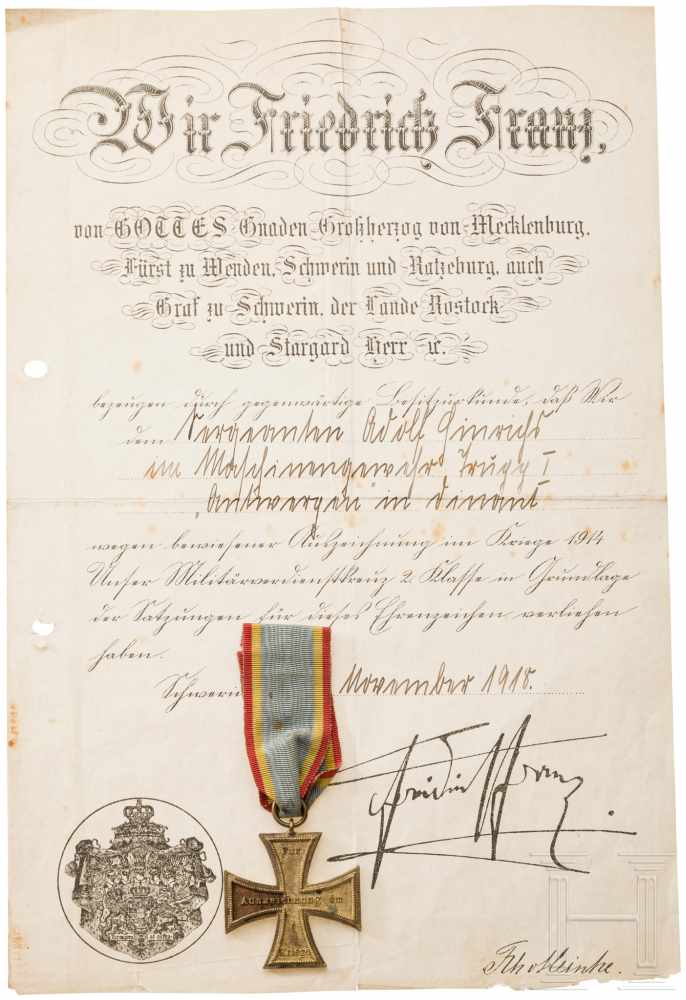 Wir Friedrich Franz,
von GOTTES Gnaden Großherzog von Mecklenburg,
Fürst zu Wenden, Schwerin und Ratzeburg, auch
Graf zu Schwerin, der Lande Rostock
und Stargard Herr ꝛc.
bezeugen durch gegenwärtige Besitzurkunde, daß Wir
dem Sergeanten Adolf Hinrichs
im Maschinengewehr Trupp I
"Antwerpen" in Dinant
wegen bewiesener Auszeichnung im Kriege 1914
Unser Militärverdienstkreuz 2. Klasse in Grundlage
der Satzungen für dieses Ehrenzeichen verliehen
haben.
Schweri November 1918.
Friedrich Franz
Für
Auszeichnung im
Kriege